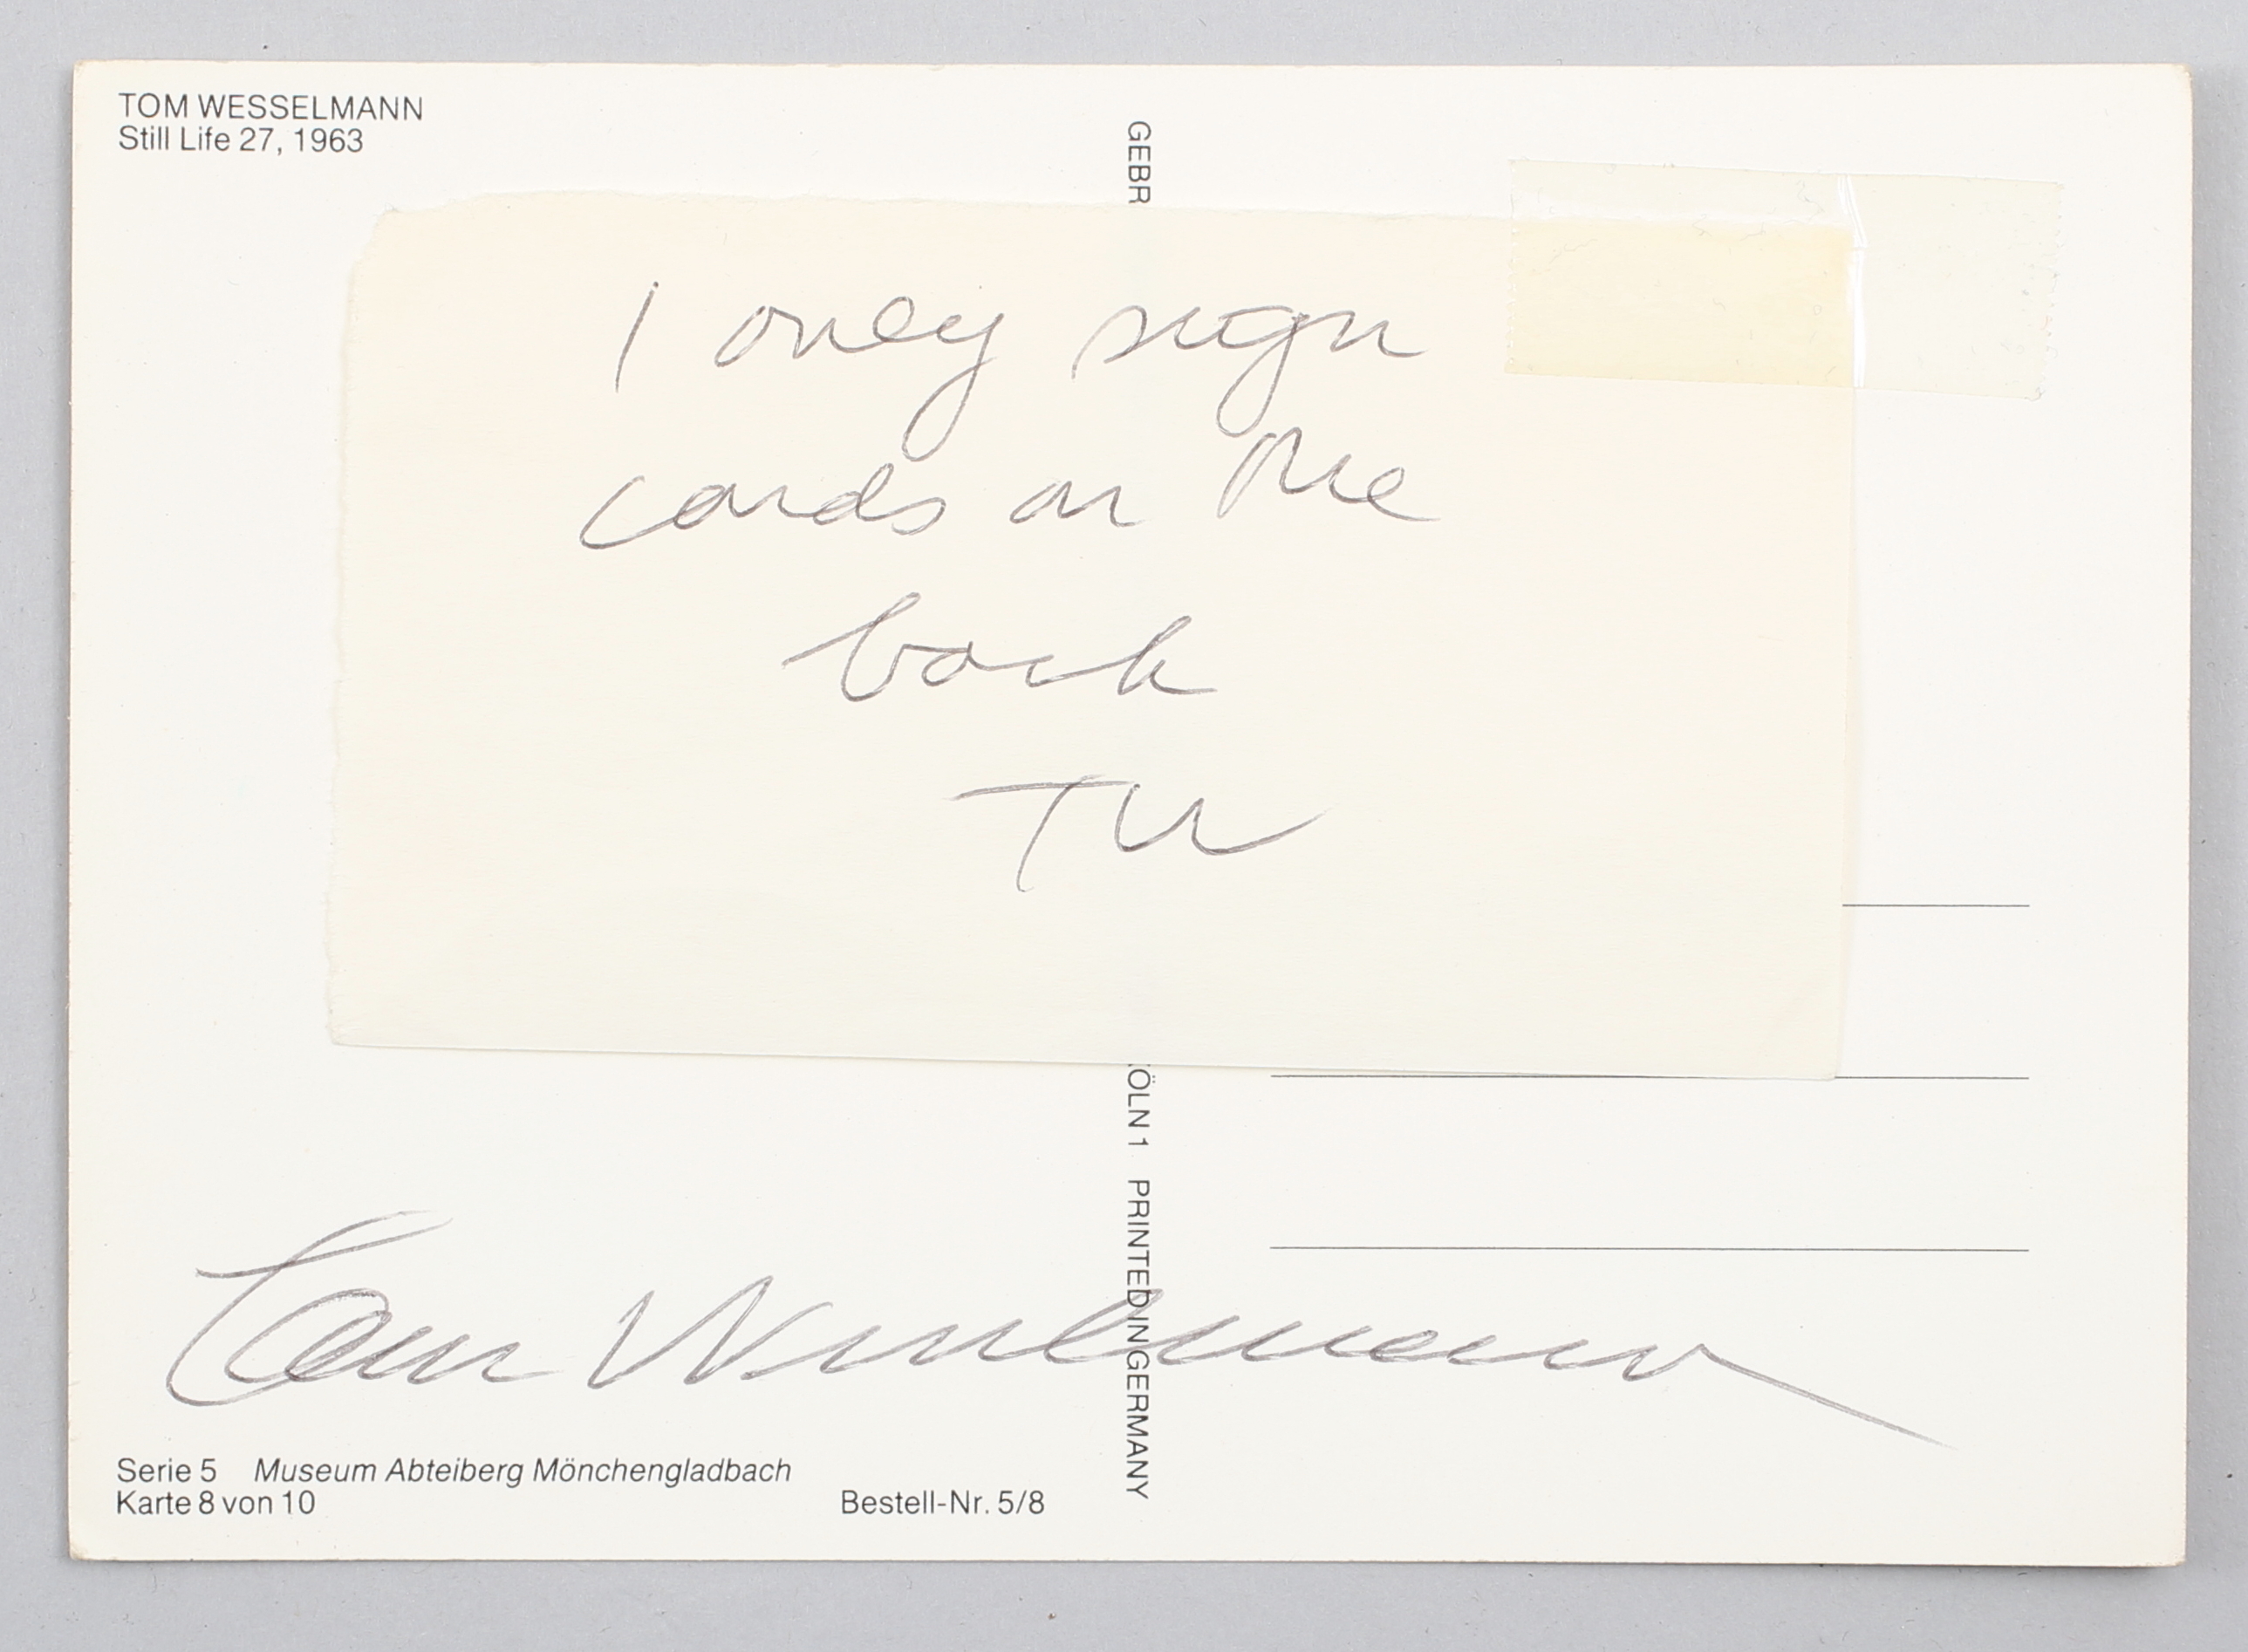 TOM WESSELMANN
Still Life 27, 1963
I only sign
cards on the
back
TW
GEBR
ÖLN 1 PRINTED IN GERMANY
Tom Wesselmann
Serie 5 Museum Abteiberg Mönchengladbach
Karte 8 von 10
Bestell-Nr. 5/8